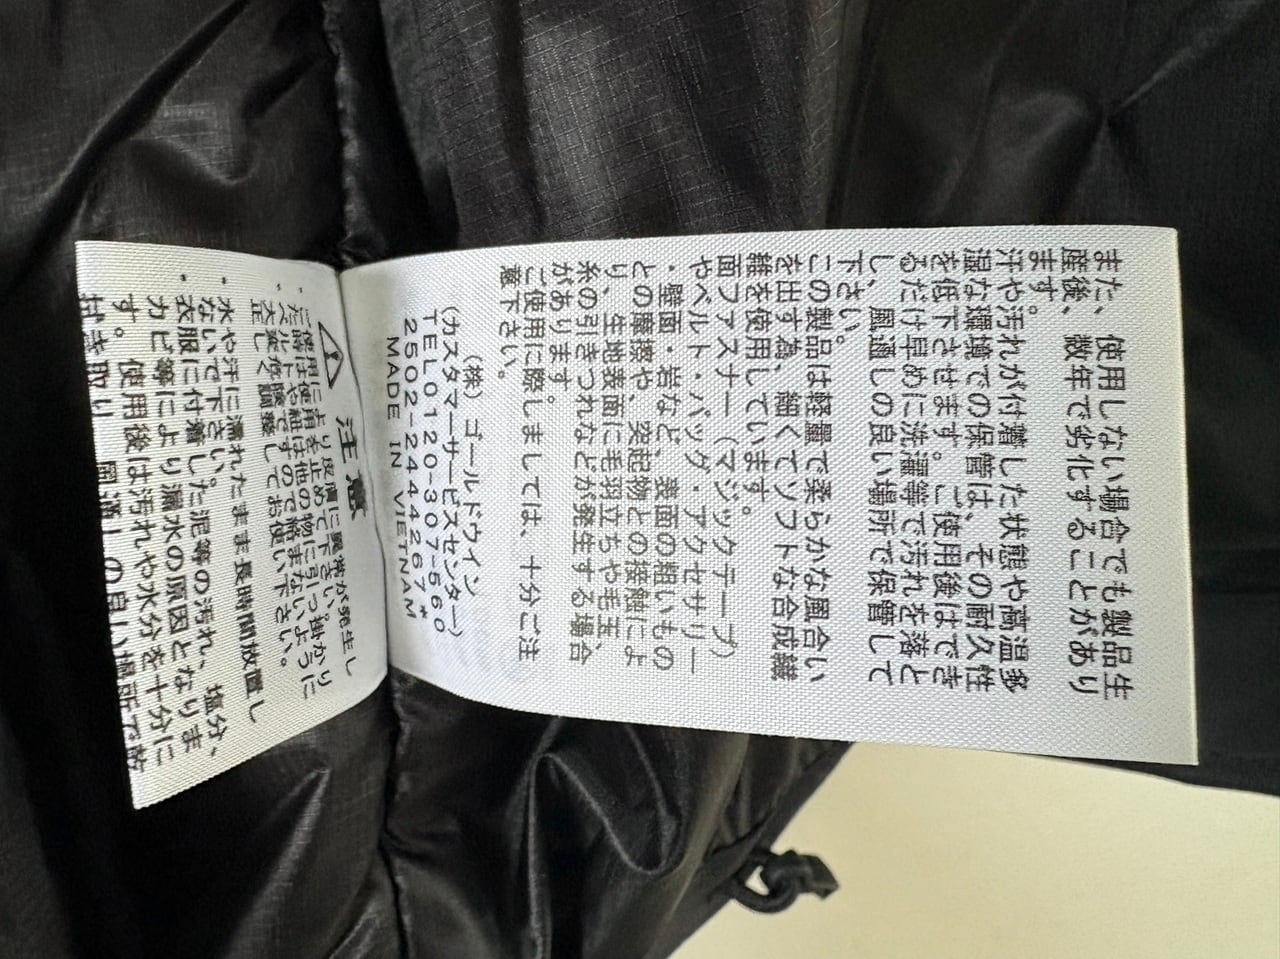 また、使用しない場合でも製品生
産後、数年で劣化することがあり
ます。
汗や汚れが付着した状態や高温多
湿な環境での保管は、その耐久性
を低下させます。ご使用後はでき
るだけ早めに洗濯等で汚れを落と
し、風通しの良い場所で保管して
下さい。
この製品は軽量で柔らかな風合い
を出す為、細くてソフトな合成繊
維を使用しています。
面ファスナー(マジックテープ)
やベルト・バッグ・アクセサリー
・壁面・岩など、表面の粗いもの
との摩擦や、突起物との接触によ
り、生地表面に毛羽立ちや毛玉、
糸の引きつれなどが発生する場合
があります。
ご使用に際しましては、十分ご注
意下さい。
(株)ゴールドウイン
(カスタマーサービスセンター)
TEL0120-307-560
2502-2444267*
MADE IN VIETNAM
注意
・ご使用により皮膚に異常が発生し
た際は使用を止めて下さい。
・ベルトや紐は他の物に引っ掛かり
大変危険ですので絡まないように
正し 調整してお使い下さい。
・水や汗に濡れたまま長時間放置し
ないで下さい。
・衣服に付着した泥等の汚れ、塩分、
カビ等により漏水の原因となりま
す。使用後は汚れや水分を十分に
拭き取り 風通しの良い場所で